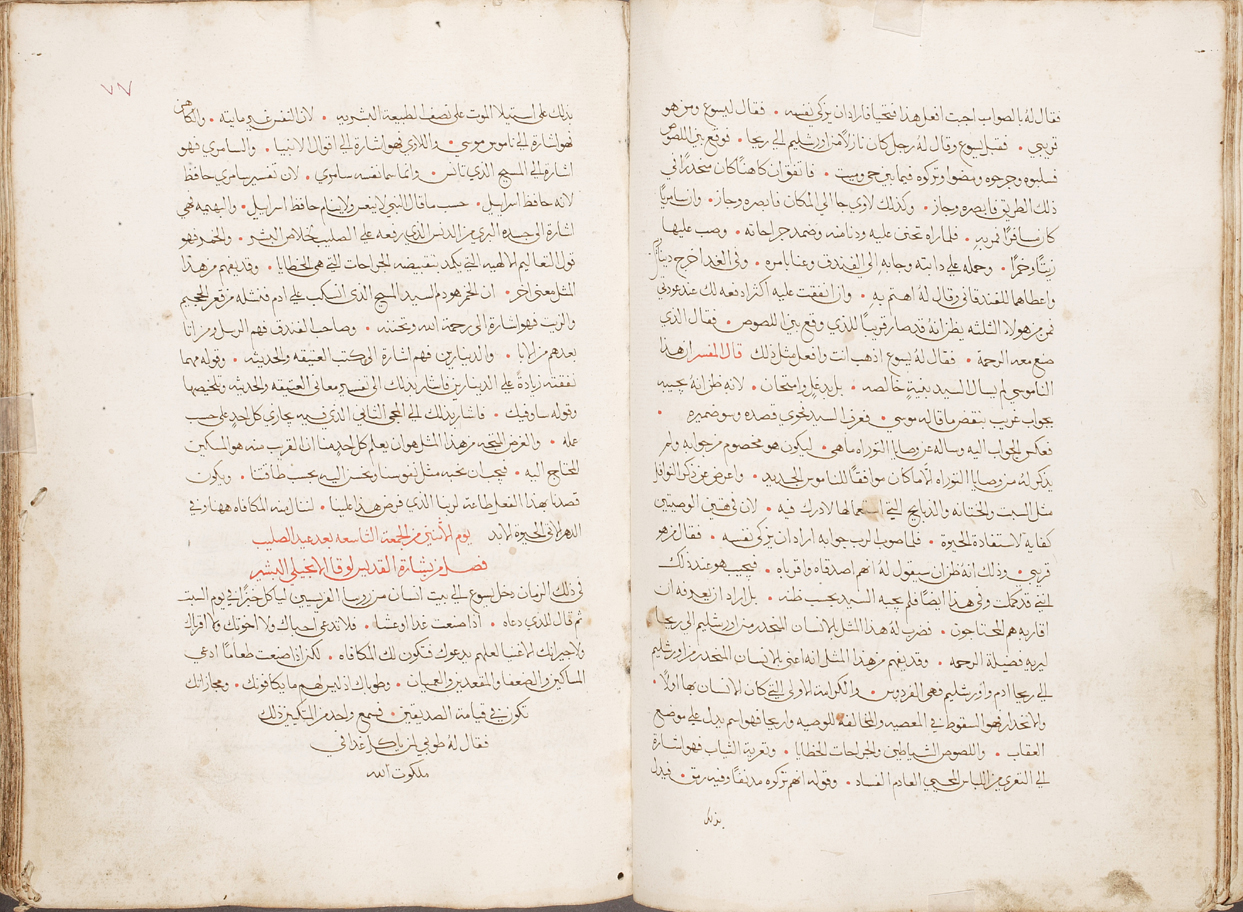 فقال له بالصواب اجبت افعل هذا فتحيا فاراد ان يزكي نفسه • فقال ليسوع ومن هو
قريبي • فضل يسوع وقال له رجل كان نازلاً من اورشليم الى ريحا • فوقع بين اللصوص
فسلبوه وجرحوه ومضوا وتركوه فيما بين حي وميت • فاتفق ان كاهناً كان منحدراً في
ذلك الطريق فابصره وجاز • وكذلك لاوي جا الى المكان فابصره وجاز • وان سامرياً
كان سافراً لمريه • فلما راه تحنن عليه ودنا منه وضمد جراحاته • وصب عليها
زيتاً وخمراً • وحمله على دابته وجا به الى الفندق وعنا بامره • وفي الغد اخرج دينارين
واعطاهما للفندقاني وقال له اهتم به • وان انفقت عليه أكثر ادفعه لك عند عودتي
فمن من هولا الثلثه يظن انه قد صار قريباً للذي وقع بين اللصوص • فقال الذي
صنع معه الرحمه • فقال له يسوع اذهب انت وافعل مثل ذلك قال المفسر ان هذا
الناموسي لم يسال السيد بنية خالصه • بل بدغل وامتحان • لانه ظن انه يجيبه
بجواب غريب ينقض ما قاله موسى • فعرف السيد نحوي قصده وسو ضميره •
فعكس الجواب اليه وساله عن وصايا التوراه ما هي • ليكون هو مخصوم من جوابه ولم
يذكر له من وصايا التوراه الّا ما كان موافقاً للناموس الجديد • واعرض عن ذكر النوافل
مثل السبت والختانه والذبايح التي استعمالها لا درك فيه • لان في هتين الوصيتين
كفايه لاستفادة الحيوة • فلما صوب الرب جوابه اراد ان يزكي نفسه • فقال من هو
قريبي • وذلك انه ظن ان سيقول له انهم اصدقاه واقرباه • فيجيب هو عند ذلك
انني قد كملت وفي هذا ايضاً فلم يجبه السيد بحسب ظنه • بل اراد ان يعرفه ان
اقاربه هم المحتاجون • فضرب له هذا المثل بالانسان المنحدر من اورشليم الى ريحا
ليريه فضيلة الرحمه • وقد يفهم من هذا المثل انه اعنى بالانسان المنحدر من اورشليم
الى ريحا ادم واورشليم فهي الفردوس • والكرامة الاولى التي كان الانسان بها اولاً •
والانحدار فهو السقوط في المعصيه والمخالفه للوصيه واريحا فهو اسم يدل على موضع
العقاب • واللصوص الشياطين والجراحات الخطايا • وتعرية الثياب فهو اشارة
الى التعري من اللباس المحيي العادم الفساد • وقوله انهم تركوه مدنفاً وفيه رمق • فيدل
بذلك
٧٧
بذلك على استيلا الموت على نصف الطبيعة البشريه • لان النفس غير مايته • والكاهن
فهو اشارة الى ناموس موسى • واللاوي فهو اشارة الى اقوال الانبيا • والسامري فهو
اشارة الى المسيح الذي تانس • وانما سما نفسه سامري • لان تفسير سامري حافظ
لانه حافظ اسراييل • حسب ما قال النبي لا ينعس ولا ينام حافظ اسراييل • والبهيمه فهي
اشارة الى جسده البري من الدنس الذي رفعه على الصليب لخلاص البشر • والخمر فهو
قول التعاليم الالهيه التي يكمد بتقبيضه الجراحات التي هي الخطايا • وقد يفهم من هذا
المثل معنى اخر • ان الخمر هو دم السيد المسيح الذي انسكب على ادم فنشله من قعر الجحيم
والزيت فهو اشارة الى رحمة الله وتحننه • وصاحب الفندق فهم الرسل ومن اتا
بعدهم من الابا • والدينارين فهم اشارة الى كتب العتيقه والحديثه • وقوله مهما
نفقته زيادةً على الدينارين فاشار بذلك الى تفسير معاني العتيقه والحديثه وتلخيصها
وقوله ساوفيك • فاشار بذلك الى المجي الثاني الذي فيه يجازي كل احد على حسب
عمله • والغرض المتجه من هذا المثل هو ان يعلم كل احد منا ان القرب منه هو المسكين
المحتاج اليه • فيجب ان نحبه مثل نفوسنا ونحسن اليه بحسب طاقتنا • ويكون
قصدنا بهذا الفعل طاعة لربنا الذي فرض هذا علينا • لننال منه المكافاه ههنا وفي
الدهر الاتي الحيوة الابد يوم الاثنين من الجمعة التاسعه بعد عيد الصليب
فصل من بشارة القديس لوقا الانجيلي البشير
في ذلك الزمان دخل يسوع الى بيت انسان من روسا الفريسيين لياكل خبزاً في يوم السبت
ثم قال للذي دعاه • اذا صنعت غدا او عشا • فلا تدعي احباك ولا اخوتك ولا اقرباك
ولا جيرانك الاغنيا لعلهم يدعوك فتكون لك المكافاه • لكن اذا صنعت طعاماً ادعي
المساكين والضعفا والمقعدين والعميان • وطوباك اذ ليس لهم ما يكافونك • ومجازاتك
تكون في قيامة الصديقين • فسمع واحد من المتكيين ذلك
فقال له طوبى لمن ياكل غدا في
ملكوت الله